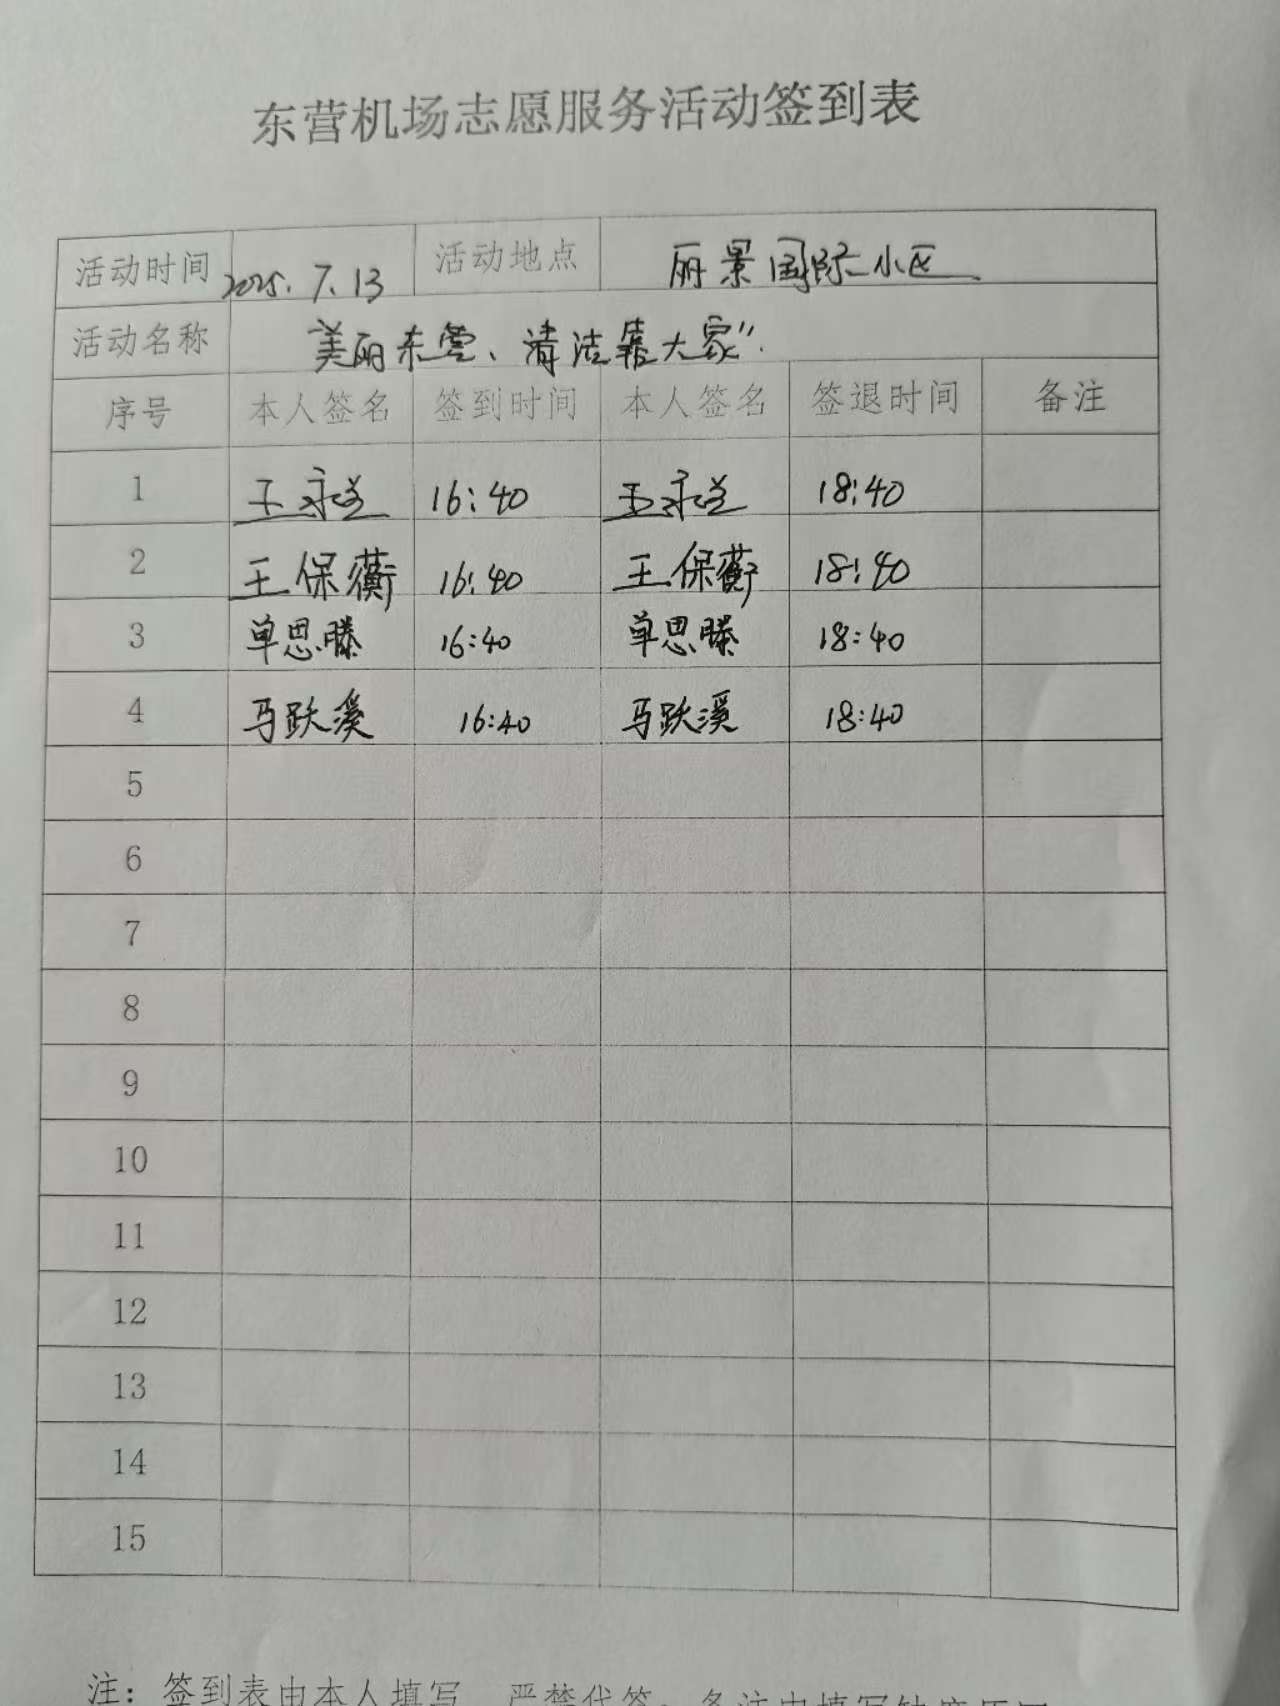 东营机场志愿服务活动签到表
活动时间 2025.7.13 活动地点 丽景国际小区
活动名称 “美丽东营、清洁靠大家”.
序号 本人签名 签到时间 本人签名 签退时间 备注
1 王永兰 16:40 王永兰 18:40
2 王保蘅 16:40 王保蘅 18:40
3 单思滕 16:40 单思滕 18:40
4 马跃溪 16:40 马跃溪 18:40
5
6
7
8
9
10
11
12
13
14
15
注：签到表由本人填写，严禁代签。备注中填写